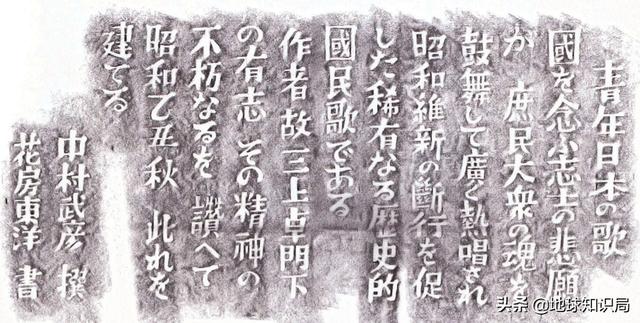 青年日本の歌
國を念ふ志士の悲願
が 庶民大衆の魂を
鼓舞して廣く熱唱され
昭和維新の斷行を促
した稀有なる歴史的
國民歌である
作者故 三上卓門下
の有志 その精神の
不朽なるを 讃へて
昭和乙丑秋 此れを
建てる
中村武彦 撰
花房東洋 書
头条 @地球知识局